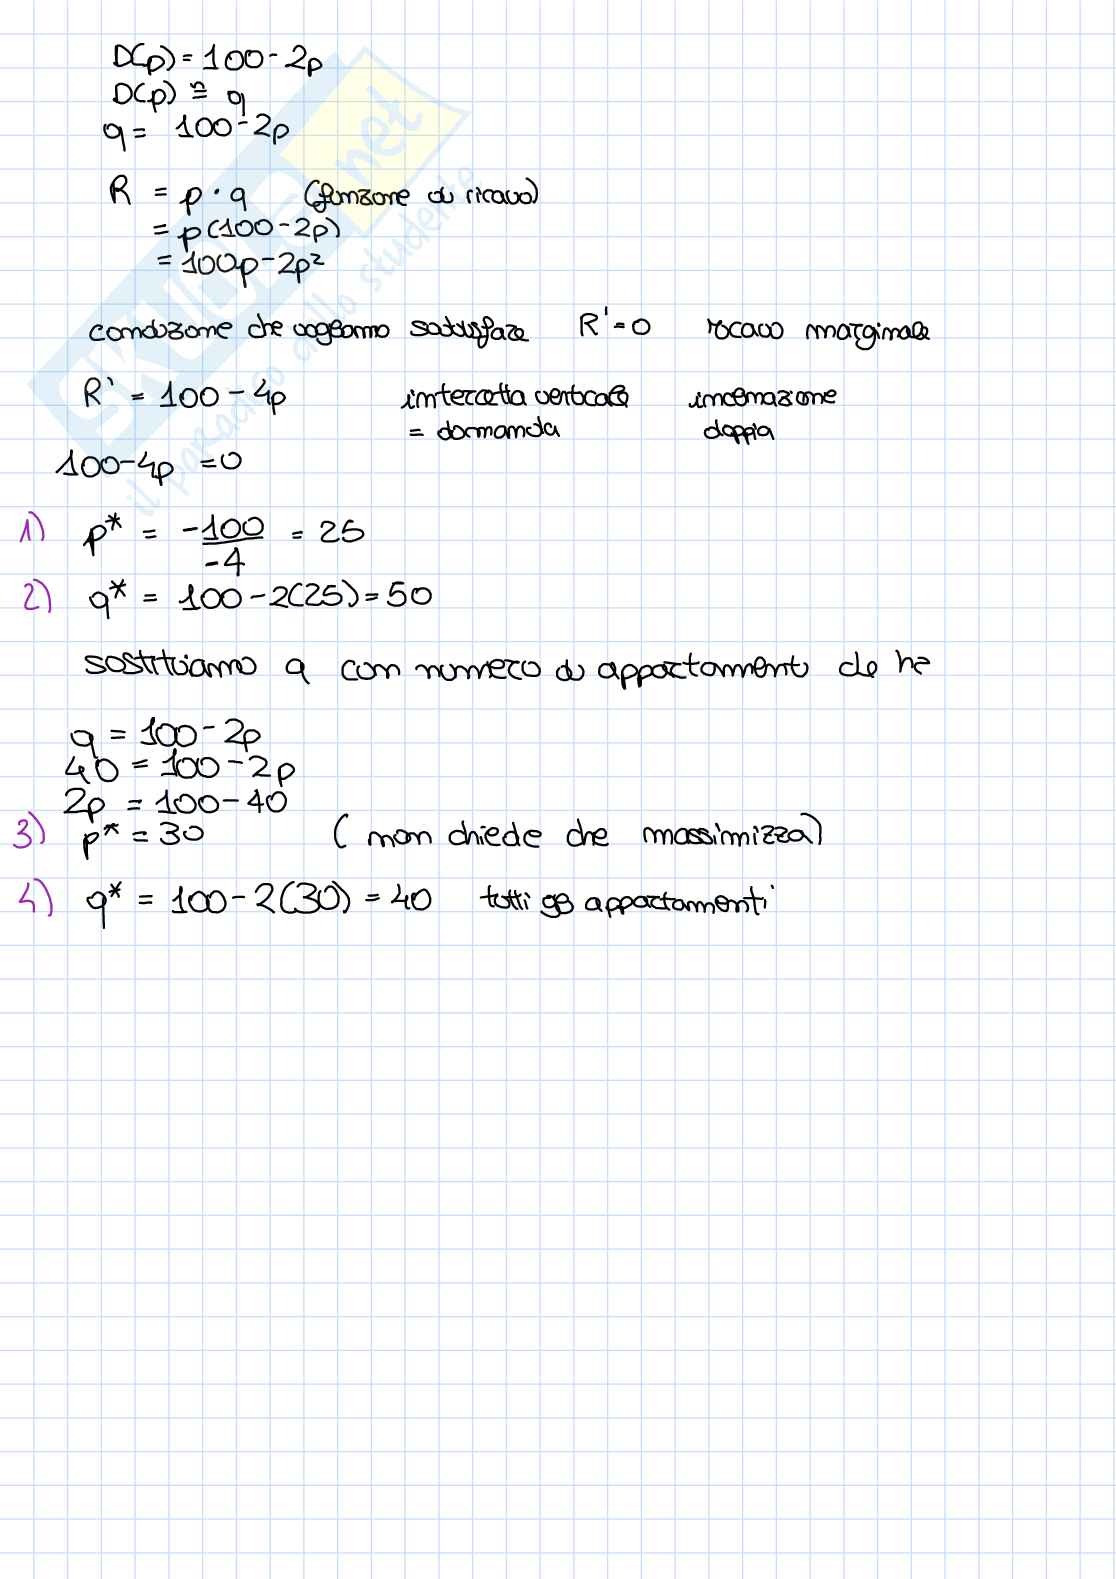 D(p) = 100 - 2p
D(p) ≅ q
q = 100 - 2p
R = p · q (funzione di ricavo)
= p(100 - 2p)
= 100p - 2p²
condizione che vogliamo soddisfare R' = 0 ricavo marginale
R' = 100 - 4p intercetta verticale inclinazione
= domanda doppia
100 - 4p = 0
1) p* = -100/-4 = 25
2) q* = 100 - 2(25) = 50
sostituiamo q con numero di appartamenti che ha
q = 100 - 2p
40 = 100 - 2p
2p = 100 - 40
3) p* = 30 (non chiede che massimizza)
4) q* = 100 - 2(30) = 40 tutti gli appartamenti
SKUOLA.net
il paradiso dello studente